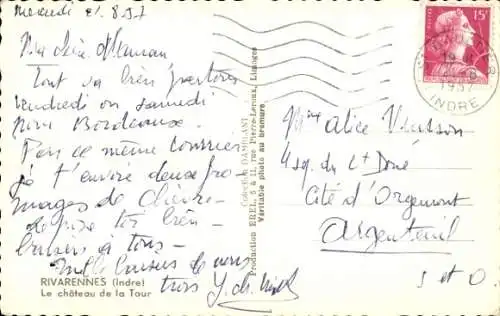 Mercredi 21.8.57
Ma chère Maman
Tout va bien, partons
vendredi ou samedi
pour Bordeaux.
Par ce même courrier
je t'envoie deux fro
mages de chèvre
bien
baisers à tous
Mille baisers de nous
trois
RIVARENNES (Indre)
Le château de la Tour
Collection DAMBLANT
Production EREL, 5 & 11, rue Pierre-Leroux, Limoges
Véritable photo au bromure.
15F
1957
INDRE
Mme Alice
4 sq. du Lt
Cité d'Orgemont
Argenteuil
S et O.